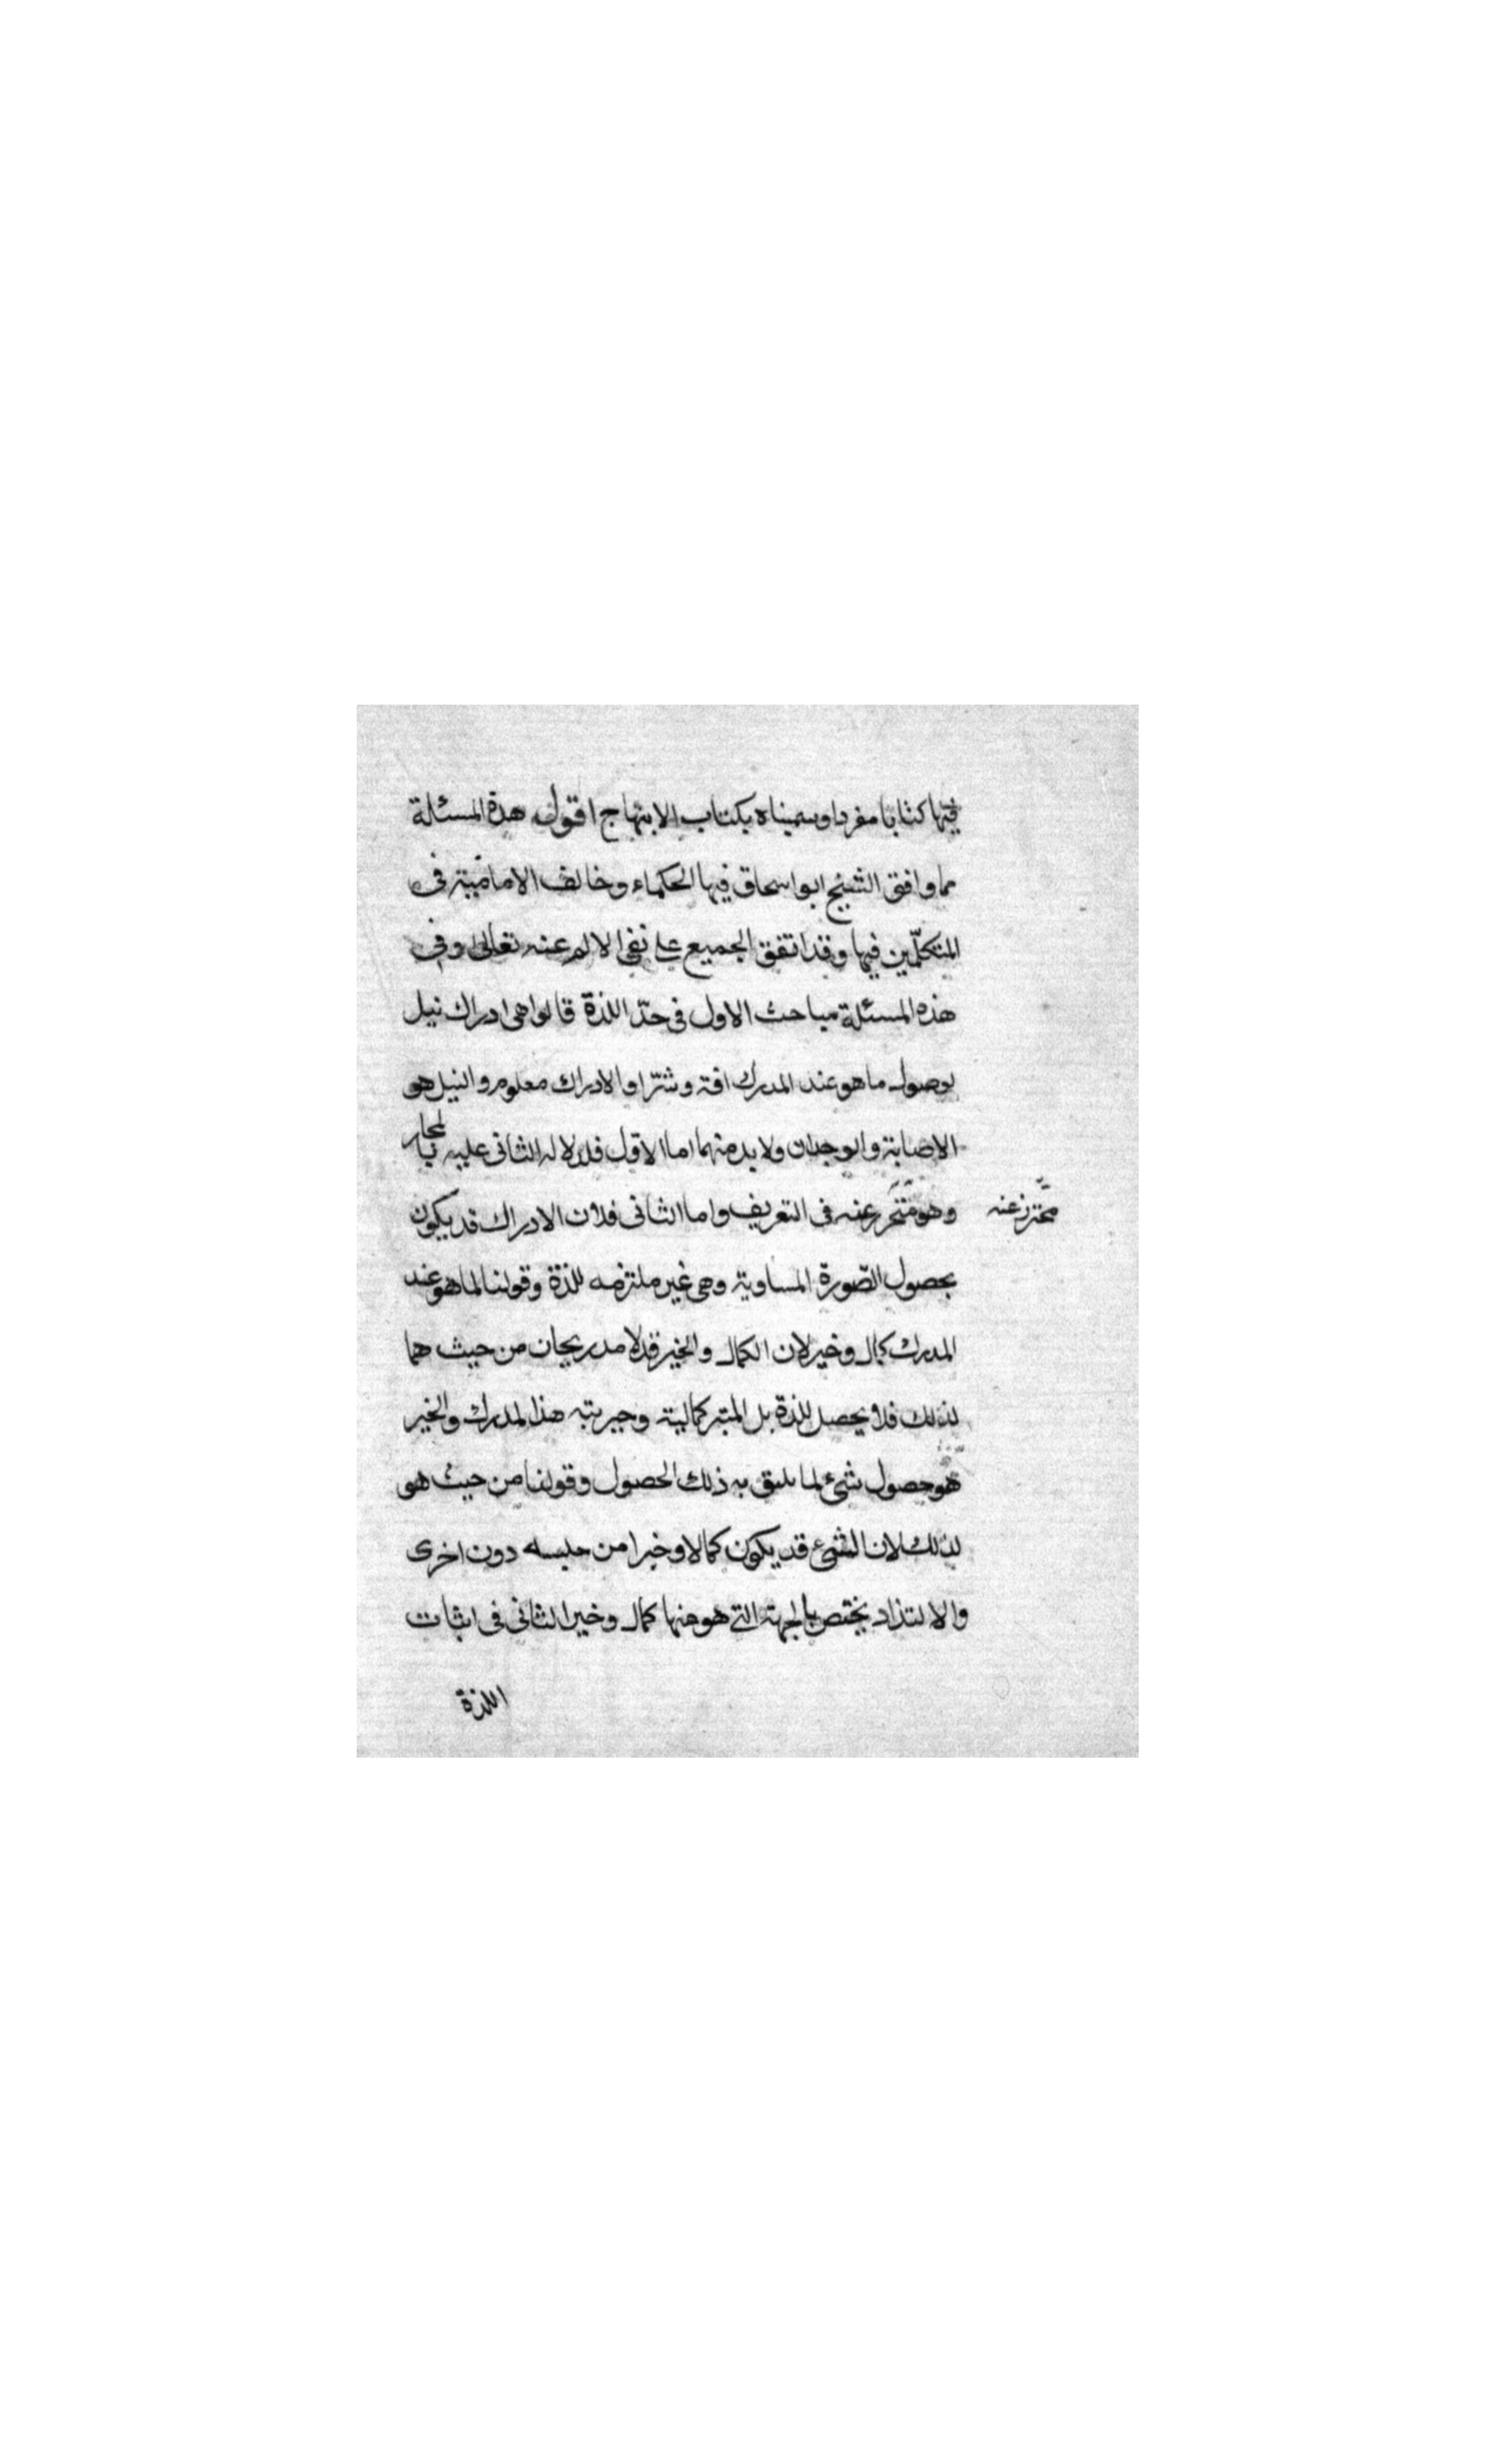 فيها كتابا مفردا وسميناه بكتاب الابتهاج اقول هذه المسئلة
مما وافق الشيخ ابو اسحاق فيها الحكماء وخالف الاماميّة في
المتكلّمين فيها وقد اتفق الجميع على نفي الالم عنه تعالى وفي
هذه المسئلة مباحث الاول في حدّ اللذة قالوا هي ادراك نيل
لوصول ما هو عند المدرك افة وشرّا والادراك معلوم والنيل هو
الاصابة والوجدان ولا بد منهما اما الاوّل فلدلالة الثاني عليه بالمجاز
وهو متحرر عنه في التعريف واما الثاني فلان الادراك قد يكون
محترز عنه
بحصول الصّورة المساوية وهي غير ملتزمه للذة وقولنا لما هو عند
المدرك كمال وخير لان الكمال والخير قد لا يدريجان من حيث هما
لذلك فلا يحصل للذة بل كمالية وخيريته هذا المدرك والخير
هو حصول شيء لما يليق به ذلك الحصول وقولنا من حيث هو
لذلك لان الشيء قد يكون كمالا وخيرا من دون اخرى
والالتذاد يختص بالجهة التي هو منها كمال وخير الثاني في اثبات
اللذة